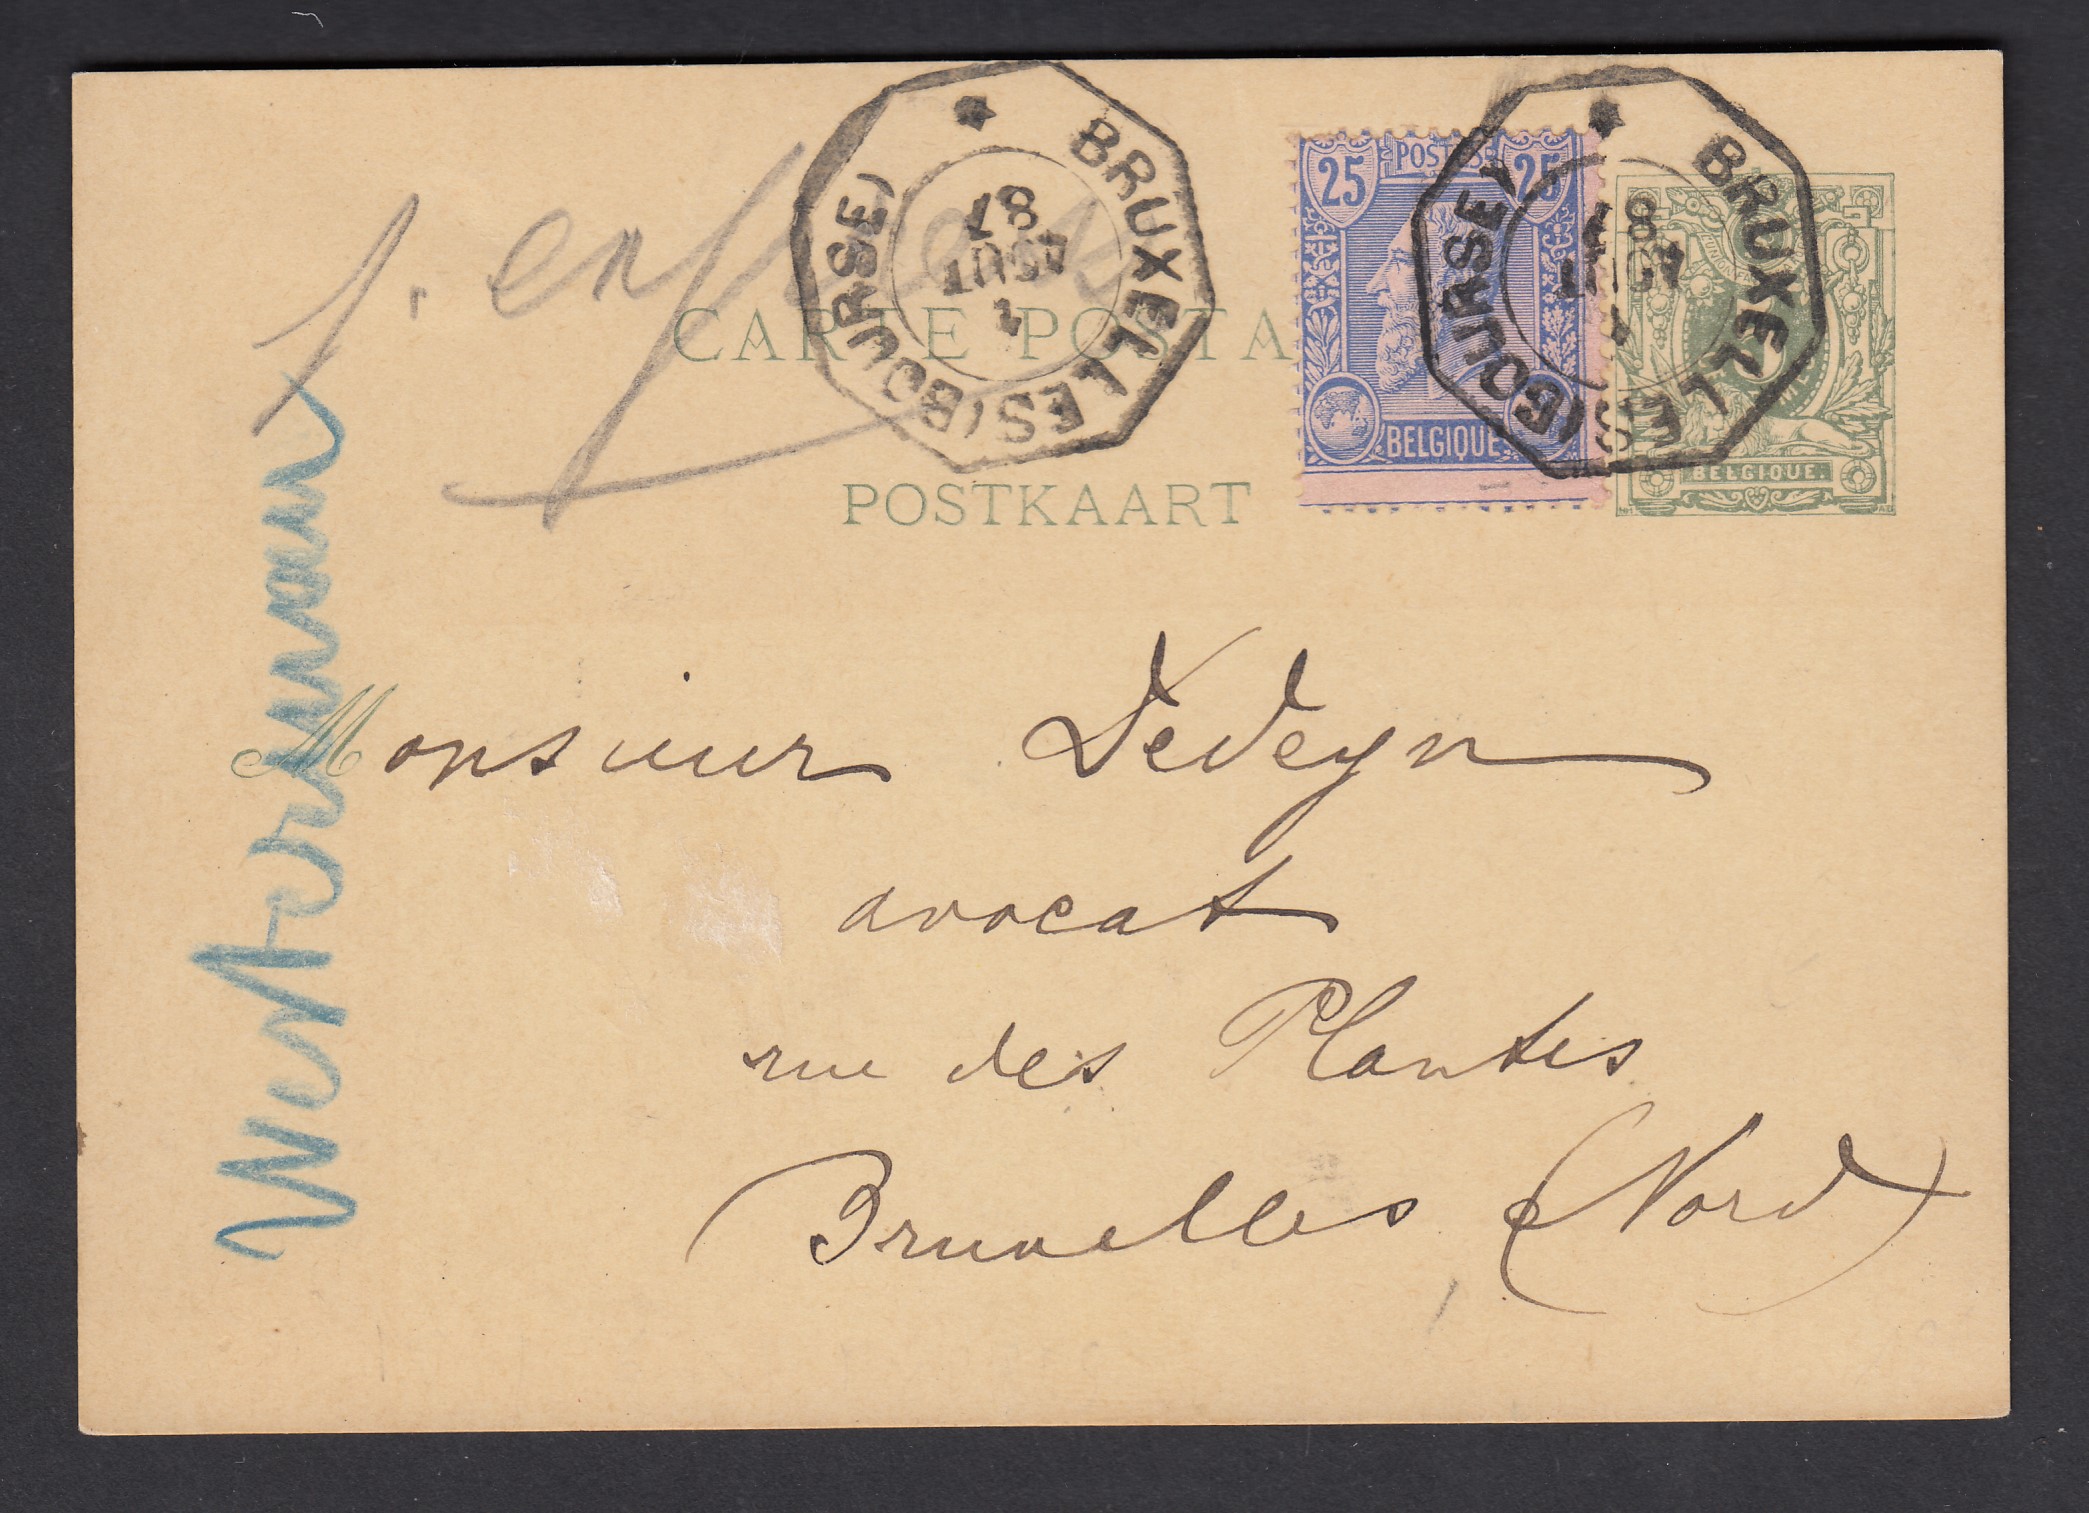 p. exprès
BRUXELLES (BOURSE)
1 AOUT 87
25 POSTES 25
BELGIQUE
BRUXELLES (BOURSE)
AOUT 87
BELGIQUE.
CARTE POSTA
POSTKAART
Monsieur Dedeyn
avocat
rue des Plantes
Bruxelles (Nord)